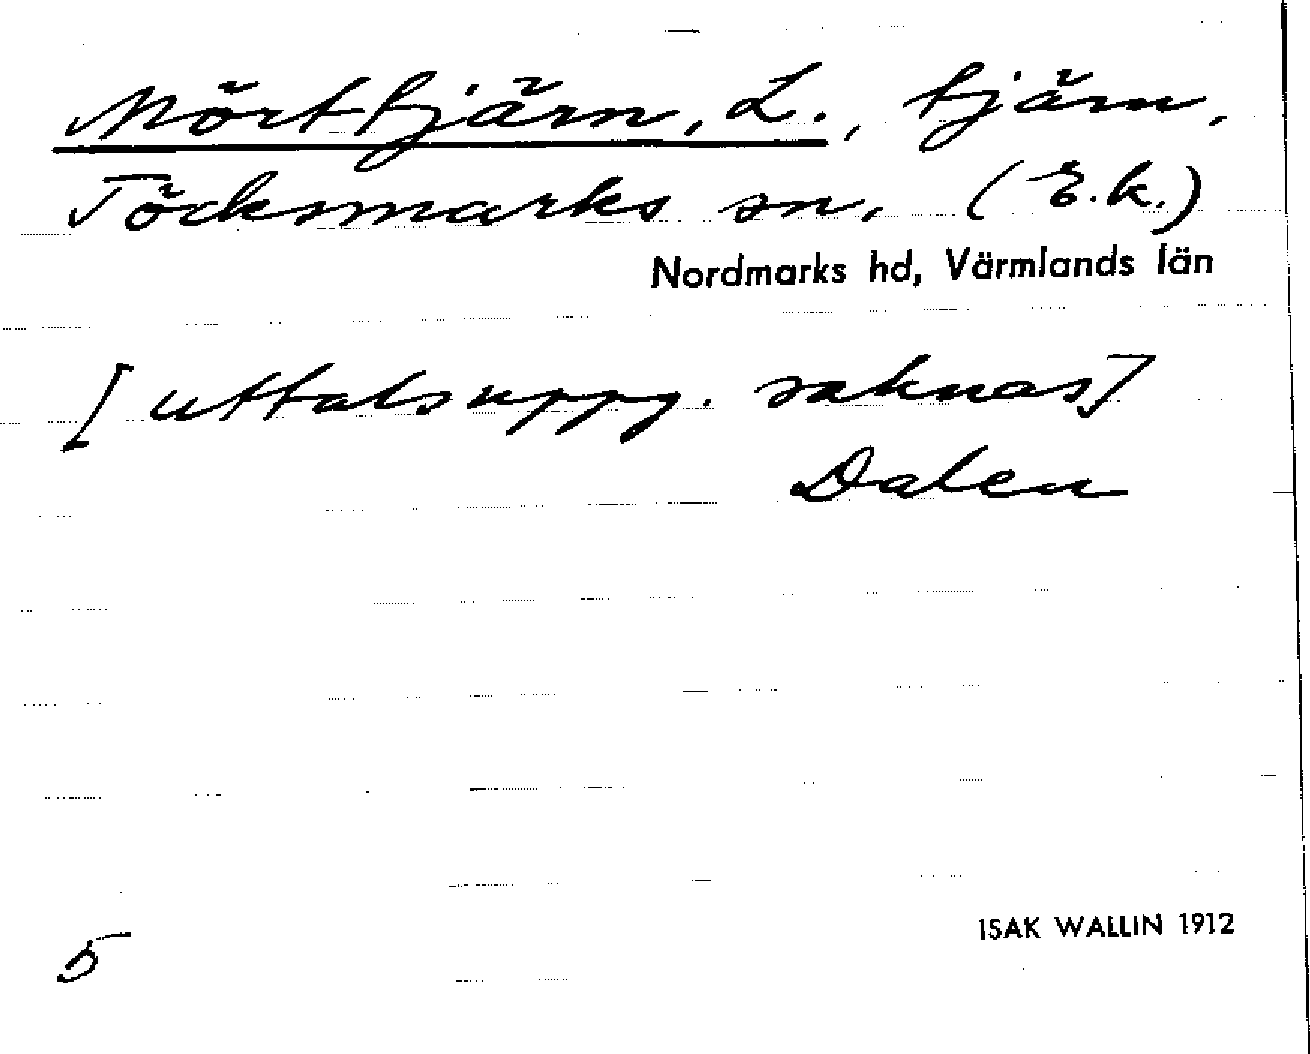 Mörttjärn, L., tjärn,
Töcksmarks sn. (E.k.)
Nordmarks hd, Värmlands län
[uttalsuppg. saknas]
Dalen
5
ISAK WALLIN 1912